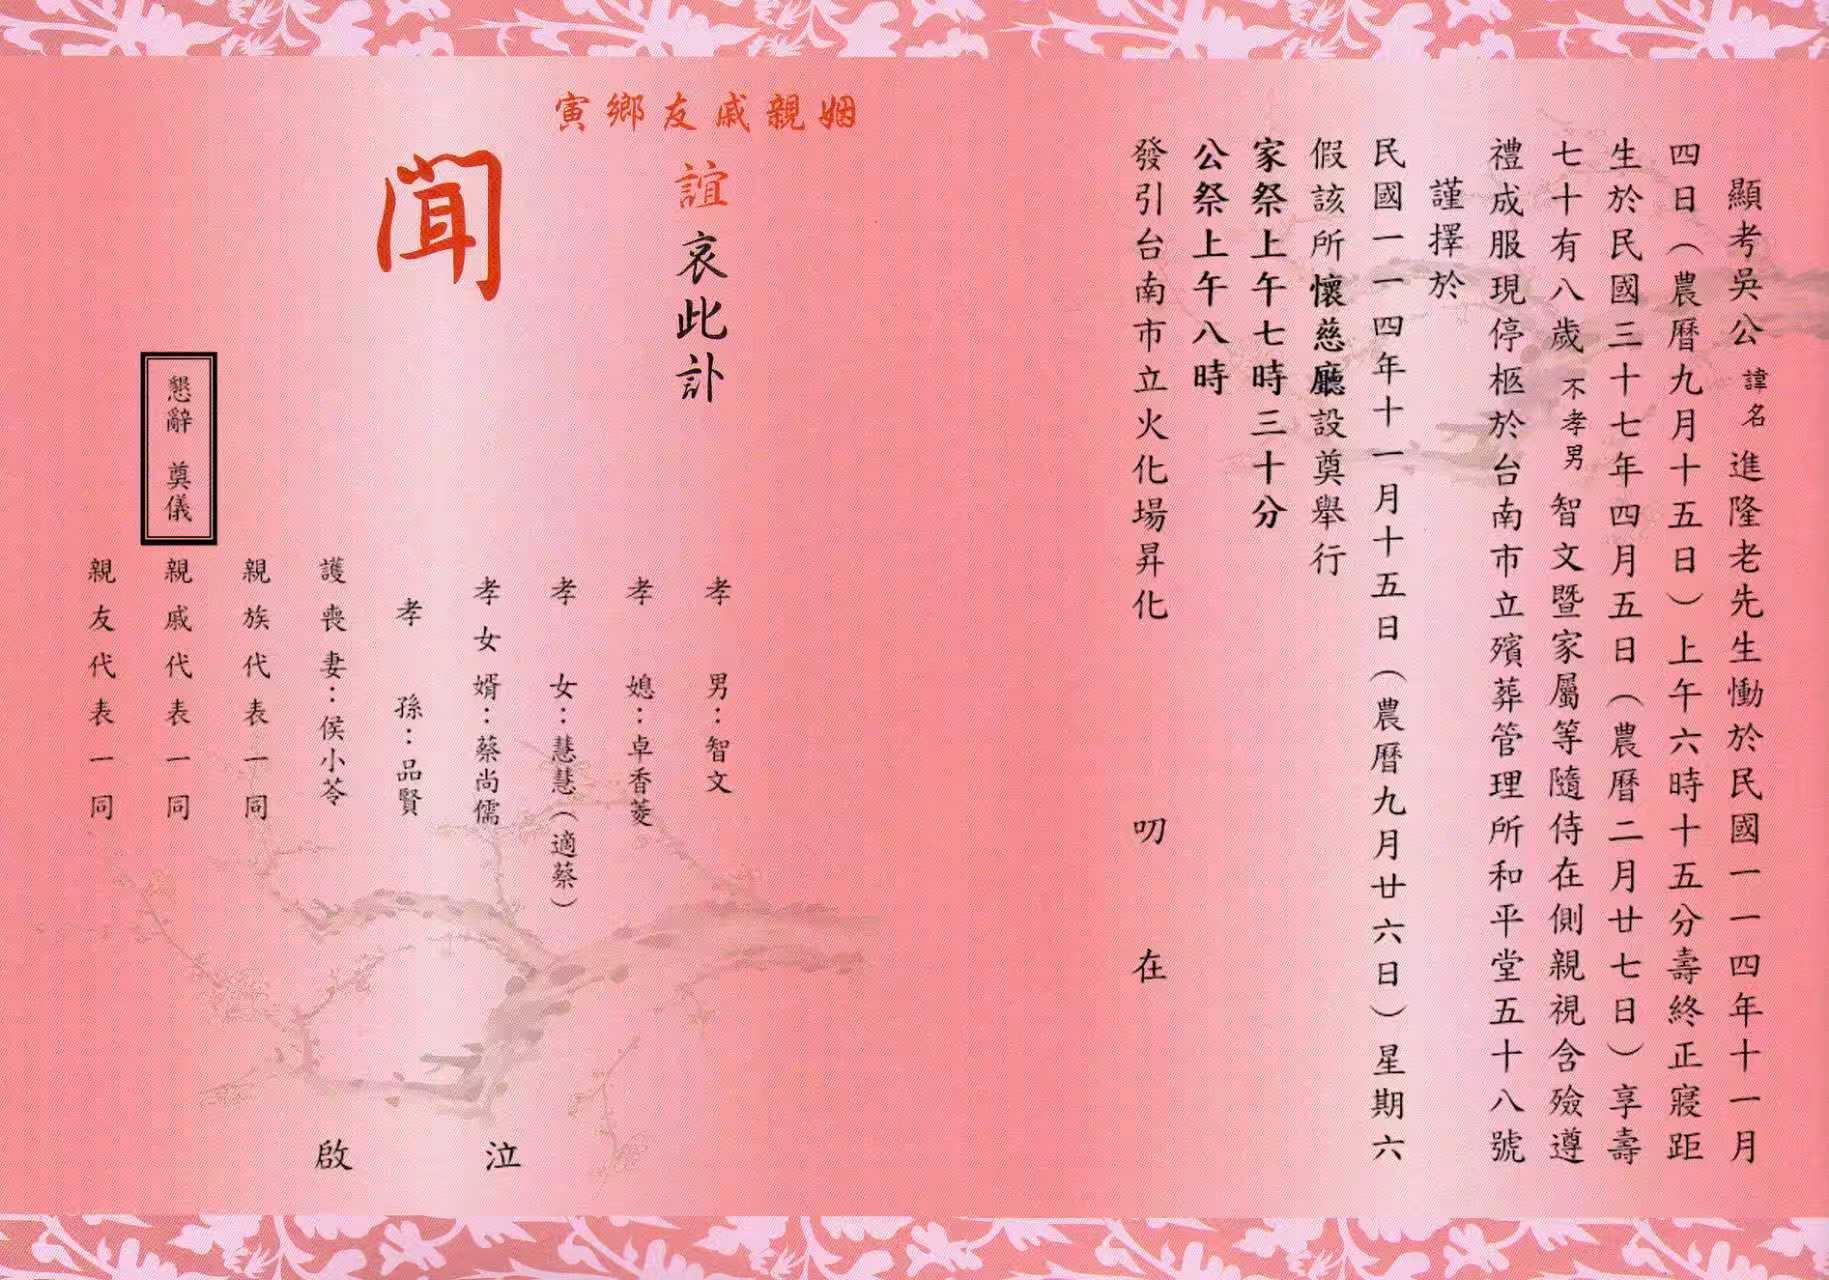 顯考吳公諱名進隆老先生慟於民國一一四年十一月
四日（農曆九月十五日）上午六時十五分壽終正寢距
生於民國三十七年四月五日（農曆二月廿七日）享壽
七十有八歲不孝男智文暨家屬等隨侍在側親視含殮遵
禮成服現停柩於台南市立殯葬管理所和平堂五十八號
謹擇於
民國一一四年十一月十五日（農曆九月廿六日）星期六
假該所懷慈廳設奠舉行
家祭上午七時三十分
公祭上午八時
發引台南市立火化場昇化 叨在
姻親戚友鄉寅
誼哀此訃
聞
孝男：智文
孝媳：卓香菱
孝女：慧慧（適蔡）
孝女婿：蔡尚儒
孝孫：品賢
護喪妻：侯小苓
親族代表一同
親戚代表一同
親友代表一同
泣啟
懇辭 奠儀